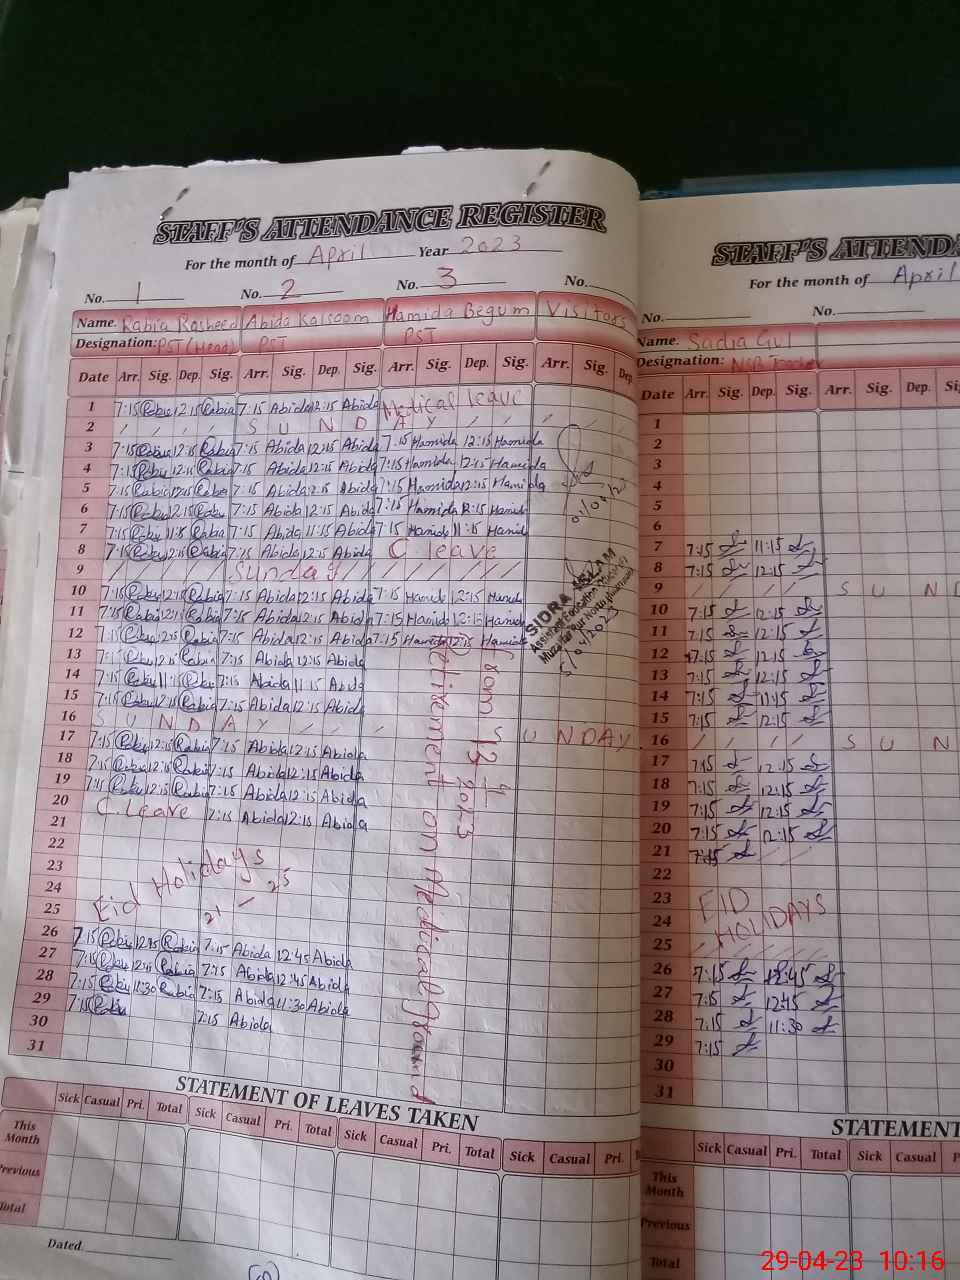 STAFF'S ATTENDANCE REGISTER
For the month of April Year 2023
No. 1 No. 2 No. 3 No.
Name. Rabia Rasheed Abida Kalsoom Hamida Begum Visitors
Designation: PST (Head) PST PST
Date Arr. Sig. Dep. Sig. Arr. Sig. Dep. Sig. Arr. Sig. Dep. Sig. Arr. Sig. Dep.
1 7:15 Rabia 12:15 Rabia 7:15 Abida 12:15 Abida Medical leave
2 S U N D A Y
3 7:15 Rabia 12:15 Rabia 7:15 Abida 12:15 Abida 7:15 Hamida 12:15 Hamida
4 7:15 Rabia 12:15 Rabia 7:15 Abida 12:15 Abida 7:15 Hamida 12:15 Hamida
5 7:15 Rabia 12:15 Rabia 7:15 Abida 12:15 Abida 7:15 Hamida 12:15 Hamida
6 7:15 Rabia 12:15 Rabia 7:15 Abida 12:15 Abida 7:15 Hamida 12:15 Hamida
7 7:15 Rabia 11:15 Rabia 7:15 Abida 11:15 Abida 7:15 Hamida 11:15 Hamida
8 7:15 Rabia 12:15 Rabia 7:15 Abida 12:15 Abida C. leave
9 Sunday
10 7:15 Rabia 12:15 Rabia 7:15 Abida 12:15 Abida 7:15 Hamida 12:15 Hamida
11 7:15 Rabia 12:15 Rabia 7:15 Abida 12:15 Abida 7:15 Hamida 12:15 Hamida
12 7:15 Rabia 12:15 Rabia 7:15 Abida 12:15 Abida 7:15 Hamida 12:15 Hamida
13 7:15 Rabia 12:15 Rabia 7:15 Abida 12:15 Abida
14 7:15 Rabia 11:15 Rabia 7:15 Abida 11:15 Abida
15 7:15 Rabia 12:15 Rabia 7:15 Abida 12:15 Abida
16 S U N D A Y S U N D A Y
17 7:15 Rabia 12:15 Rabia 7:15 Abida 12:15 Abida
18 7:15 Rabia 12:15 Rabia 7:15 Abida 12:15 Abida
19 7:15 Rabia 12:15 Rabia 7:15 Abida 12:15 Abida
20 C. Leave 7:15 Abida 12:15 Abida
21
22
23 Eid Holidays
24 21 - 25
25
26 7:15 Rabia 12:45 Rabia 7:15 Abida 12:45 Abida
27 7:15 Rabia 12:45 Rabia 7:15 Abida 12:45 Abida
28 7:15 Rabia 11:30 Rabia 7:15 Abida 11:30 Abida
29 7:15 Rabia 7:15 Abida
30
31
Retirement on Medical ground
from 13 4 2023
SIDRA ASLAM
Assistant Education Officer
STATEMENT OF LEAVES TAKEN
Sick Casual Pri. Total Sick Casual Pri. Total Sick Casual Pri. Total Sick Casual Pri.
This Month
Previous
Total
Dated
STAFF'S ATTENDA
For the month of April
No. No.
Name: Sadia Gul
Designation: NSB Teacher
Date Arr. Sig. Dep. Sig. Arr. Sig. Dep.
1
2
3
4
5
6
7 7:15 11:15
8 7:15 12:15
9 S U N D
10 7:15 12:15
11 7:15 12:15
12 7:15 12:15
13 7:15 12:15
14 7:15 11:15
15 7:15 12:15
16 S U N
17 7:15 12:15
18 7:15 12:15
19 7:15 12:15
20 7:15 12:15
21 7:15
22
23 EID
24 HOLIDAYS
25
26 7:15 12:45
27 7:15 12:45
28 7:15 11:30
29 7:15
30
31
STATEMENT
Sick Casual Pri. Total Sick Casual
This Month
Previous
Total
29-04-23 10:16